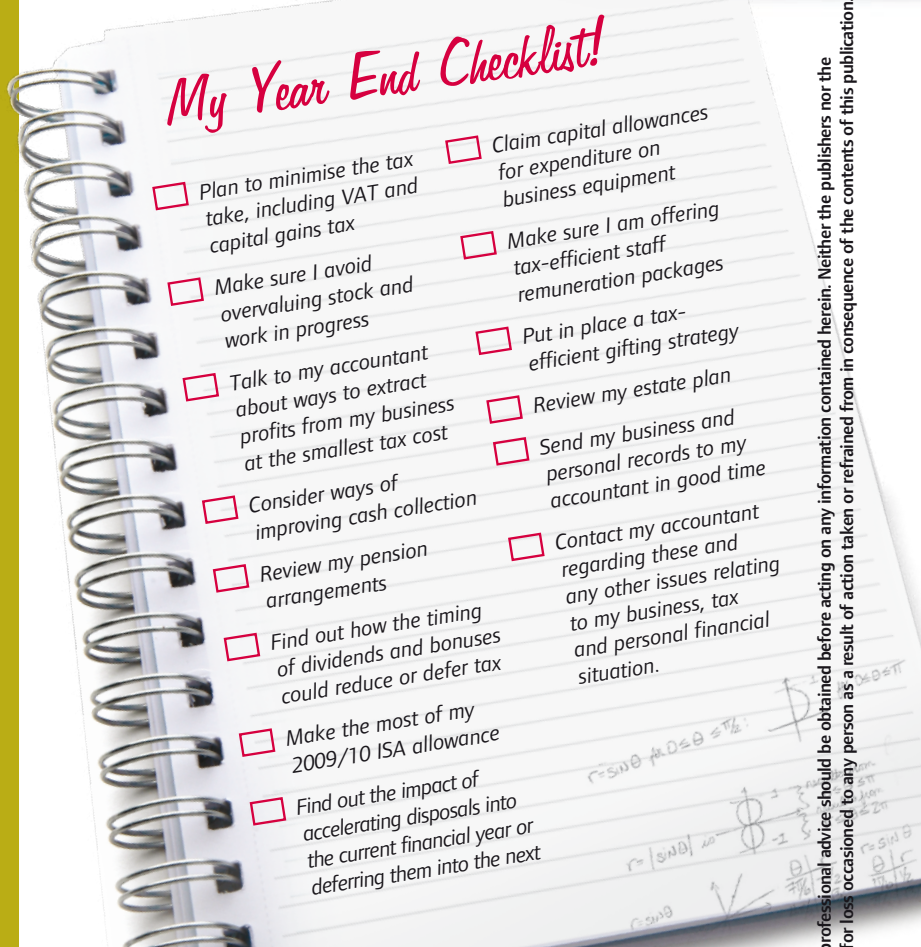 My Year End Checklist!
Plan to minimise the tax
take, including VAT and
capital gains tax
Make sure I avoid
overvaluing stock and
work in progress
Talk to my accountant
about ways to extract
profits from my business
at the smallest tax cost
Consider ways of
improving cash collection
Review my pension
arrangements
Find out how the timing
of dividends and bonuses
could reduce or defer tax
Make the most of my
2009/10 ISA allowance
Find out the impact of
accelerating disposals into
the current financial year or
deferring them into the next
Claim capital allowances
for expenditure on
business equipment
Make sure I am offering
tax-efficient staff
remuneration packages
Put in place a tax-
efficient gifting strategy
Review my estate plan
Send my business and
personal records to my
accountant in good time
Contact my accountant
regarding these and
any other issues relating
to my business, tax
and personal financial
situation.
r=sinθ 0≤θ≤π/2:
0≤θ≤π
r=|sinθ|
r=sinθ
r=sinθ
professional advice should be obtained before acting on any information contained herein. Neither the publishers nor the
for loss occasioned to any person as a result of action taken or refrained from in consequence of the contents of this publication.